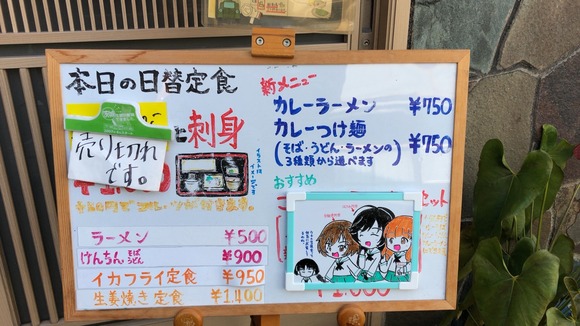 本日の日替定食
刺身
売り切れ
です。
イラストは
イメージです
ラーメン ¥500
けんちん そば うどん ¥900
イカフライ定食 ¥950
生姜焼き定食 ¥1,400
新メニュー
カレーラーメン ¥750
カレーつけ麺 ¥750
(そば・うどん・ラーメンの
3種類から選べます)
おすすめ
セット